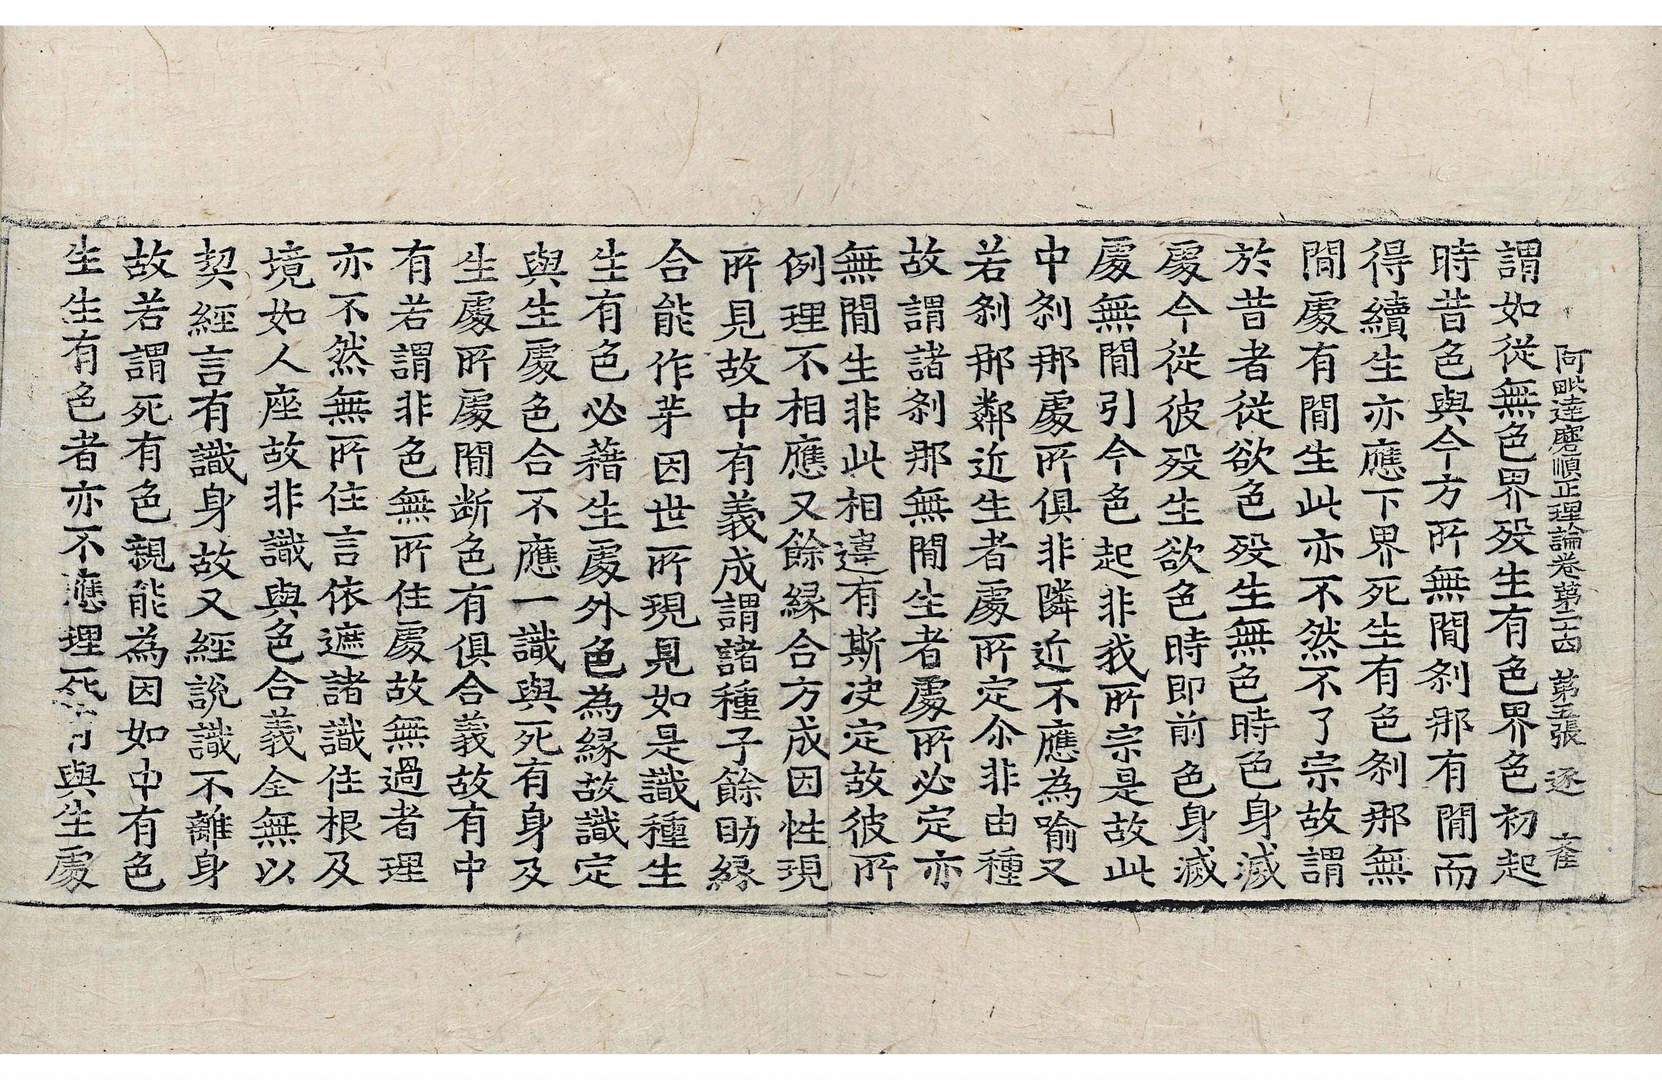 阿毗達磨順正理論卷第二十四 第五張 逐
謂如從無色界歿生有色界色初起
時昔色與今方所無閒刹那有閒而
得續生亦應下界死生有色刹那無
閒處有閒生此亦不然不了宗故謂
於昔者從欲色歿生無色時色身滅
處今從彼歿生欲色時即前色身滅
處無閒引今色起非我所宗是故此
中刹那處所俱非隣近不應為喻又
若刹那鄰近生者處所定尒非由種
故謂諸刹那無閒生者處所必定亦
無閒生非此相違有斯決定故彼所
例理不相應又餘緣合方成因性現
所見故中有義成謂諸種子餘助緣
合能作芽因世所現見如是識種生
生有色必藉生處外色為緣故識定
與生處色合不應一識與死有身及
生處所處閒断色有俱合義故有中
有若謂非色無所住處故無過者理
亦不然無所住言依遮諸識住根及
境如人座故非識與色合義全無以
契經言有識身故又經說識不離身
故若謂死有色親能為因如中有色
生生有色者亦不應理死有與生處